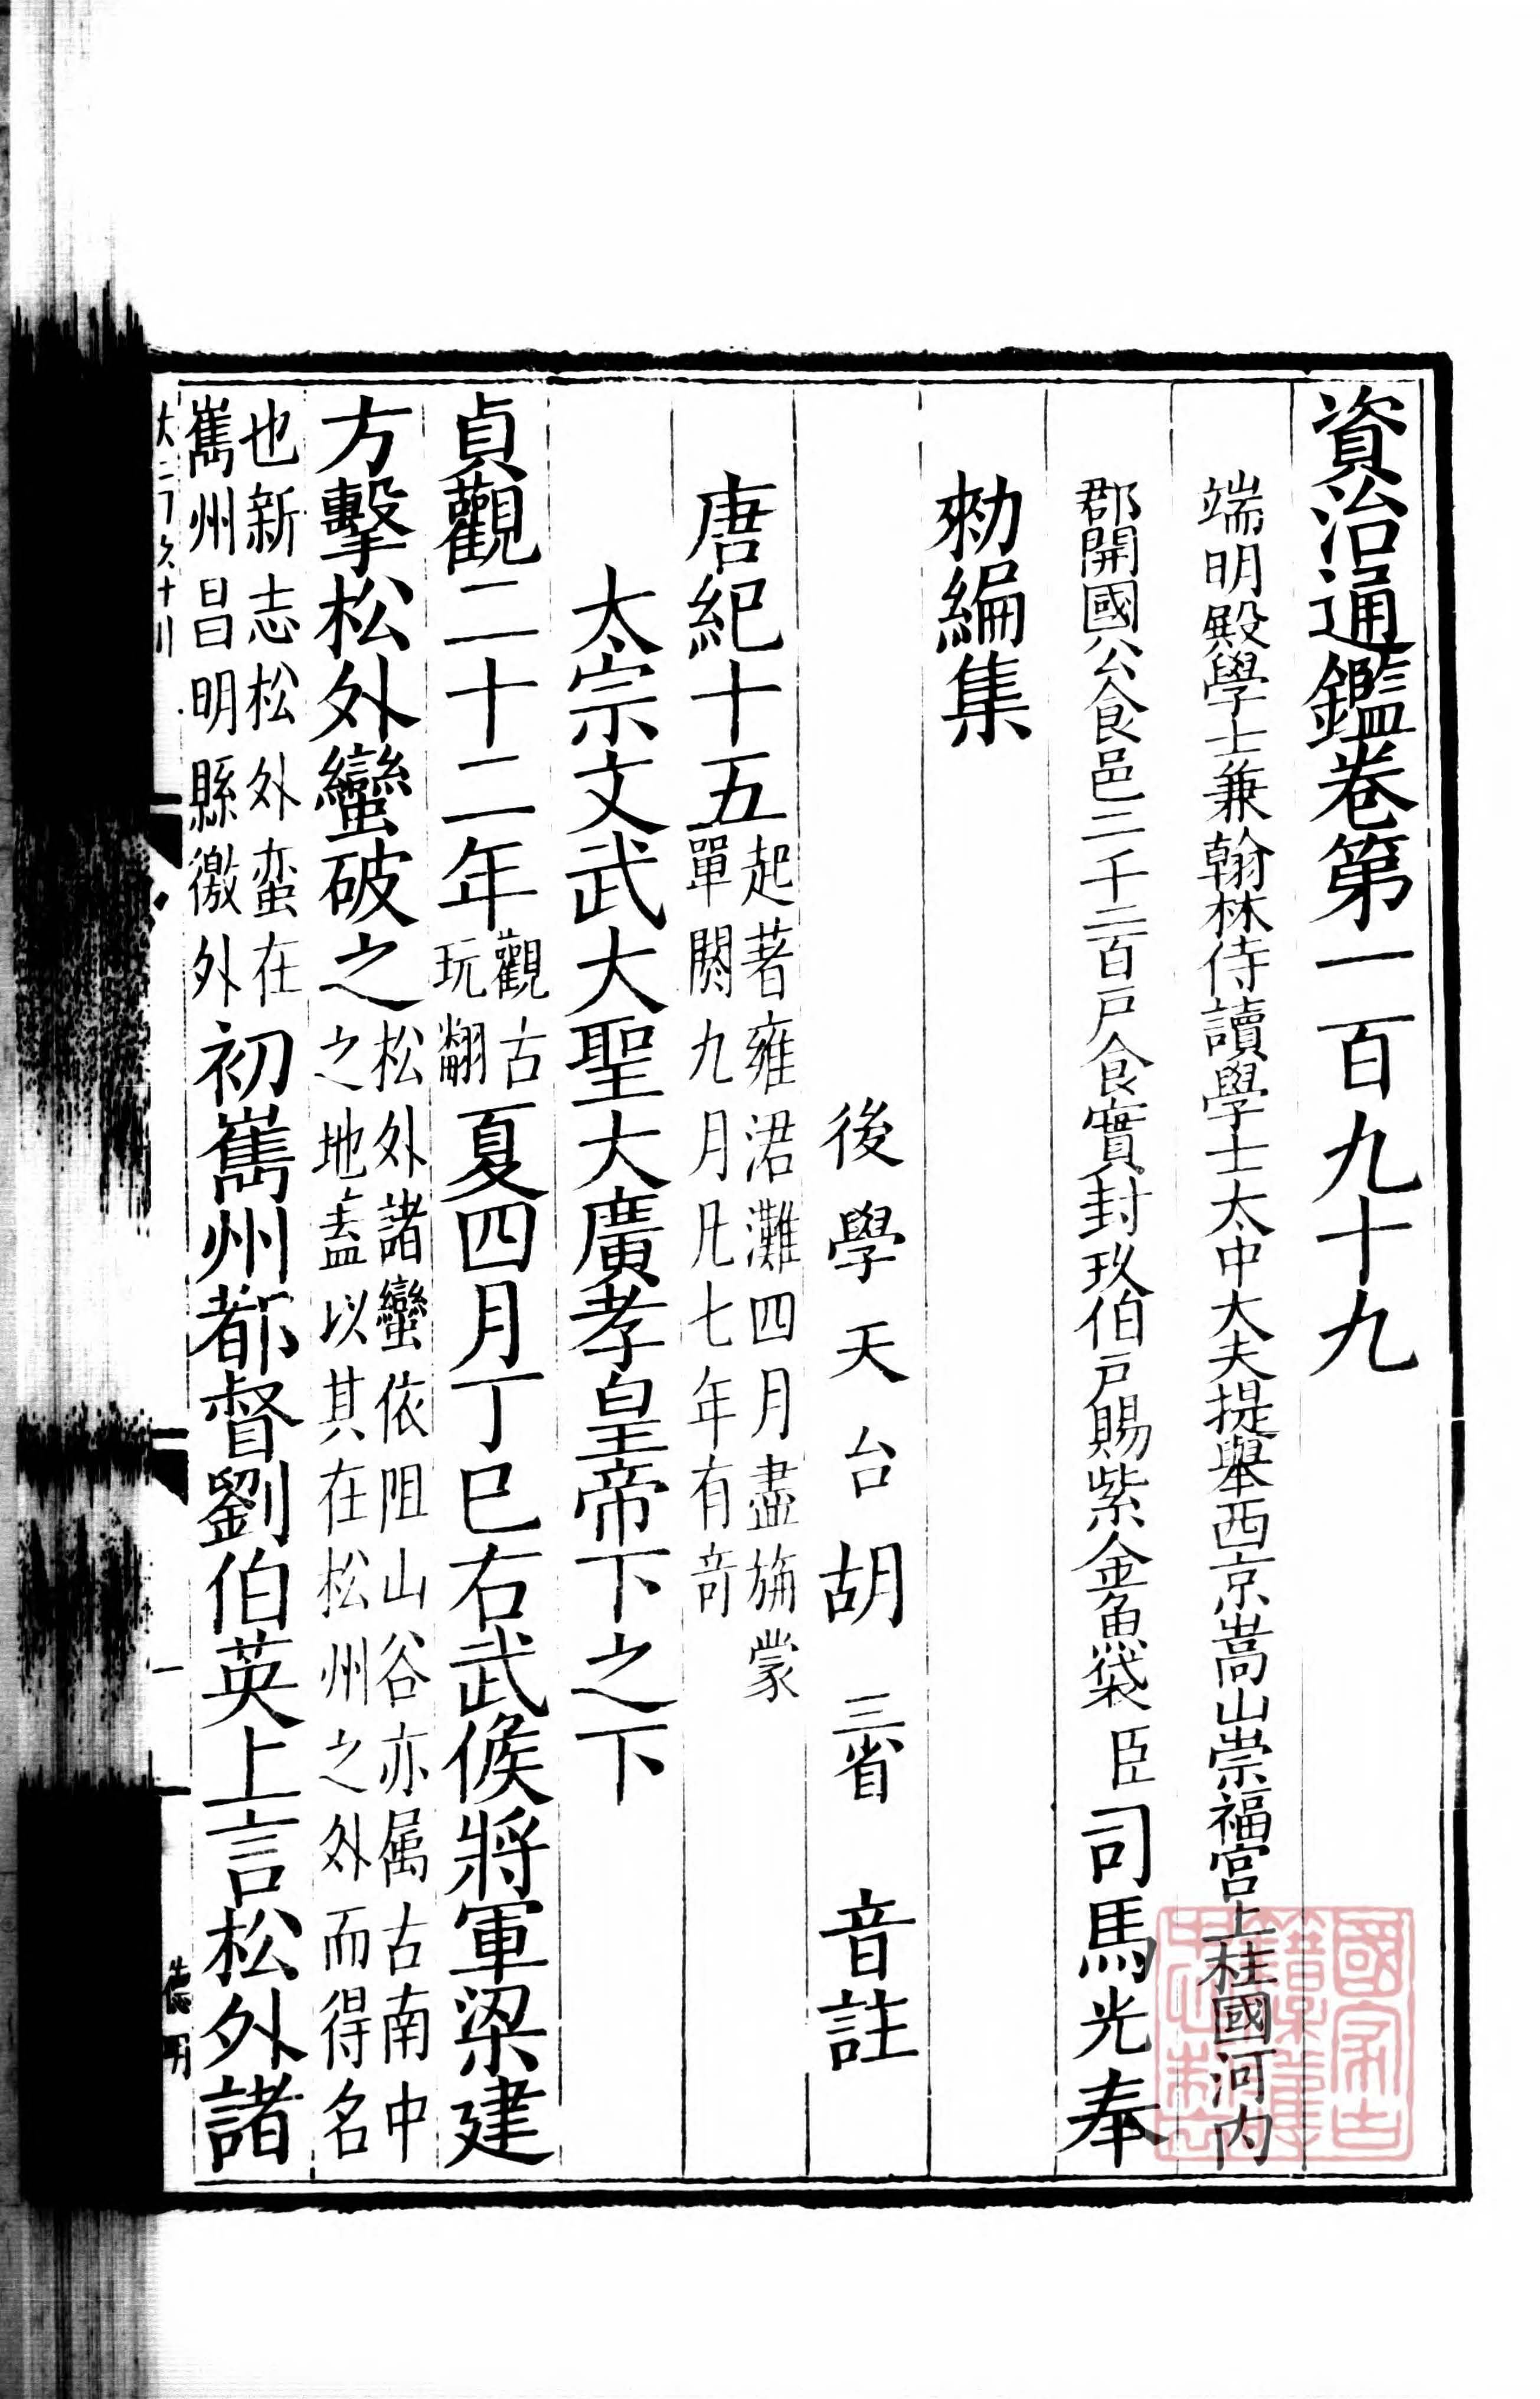 資治通鑑卷第一百九十九
端明殿學士兼翰林侍讀學士太中大夫提舉西京嵩山崇福宮上柱國河內
郡開國公食邑二千二百戶食實封玖伯戶賜紫金魚袋臣司馬光奉
勑編集
後學天台胡三省音註
唐紀十五起著雍涒灘四月盡旃蒙
單閼九月凡七年有竒
太宗文武大聖大廣孝皇帝下之下
貞觀二十二年觀古
玩翻夏四月丁巳右武候將軍梁建
方擊松外蠻破之松外諸蠻依阻山谷亦属古南中
之地盖以其在松州之外而得名
也新志松外蛮在
巂州昌明縣徼外初巂州都督劉伯英上言松外諸